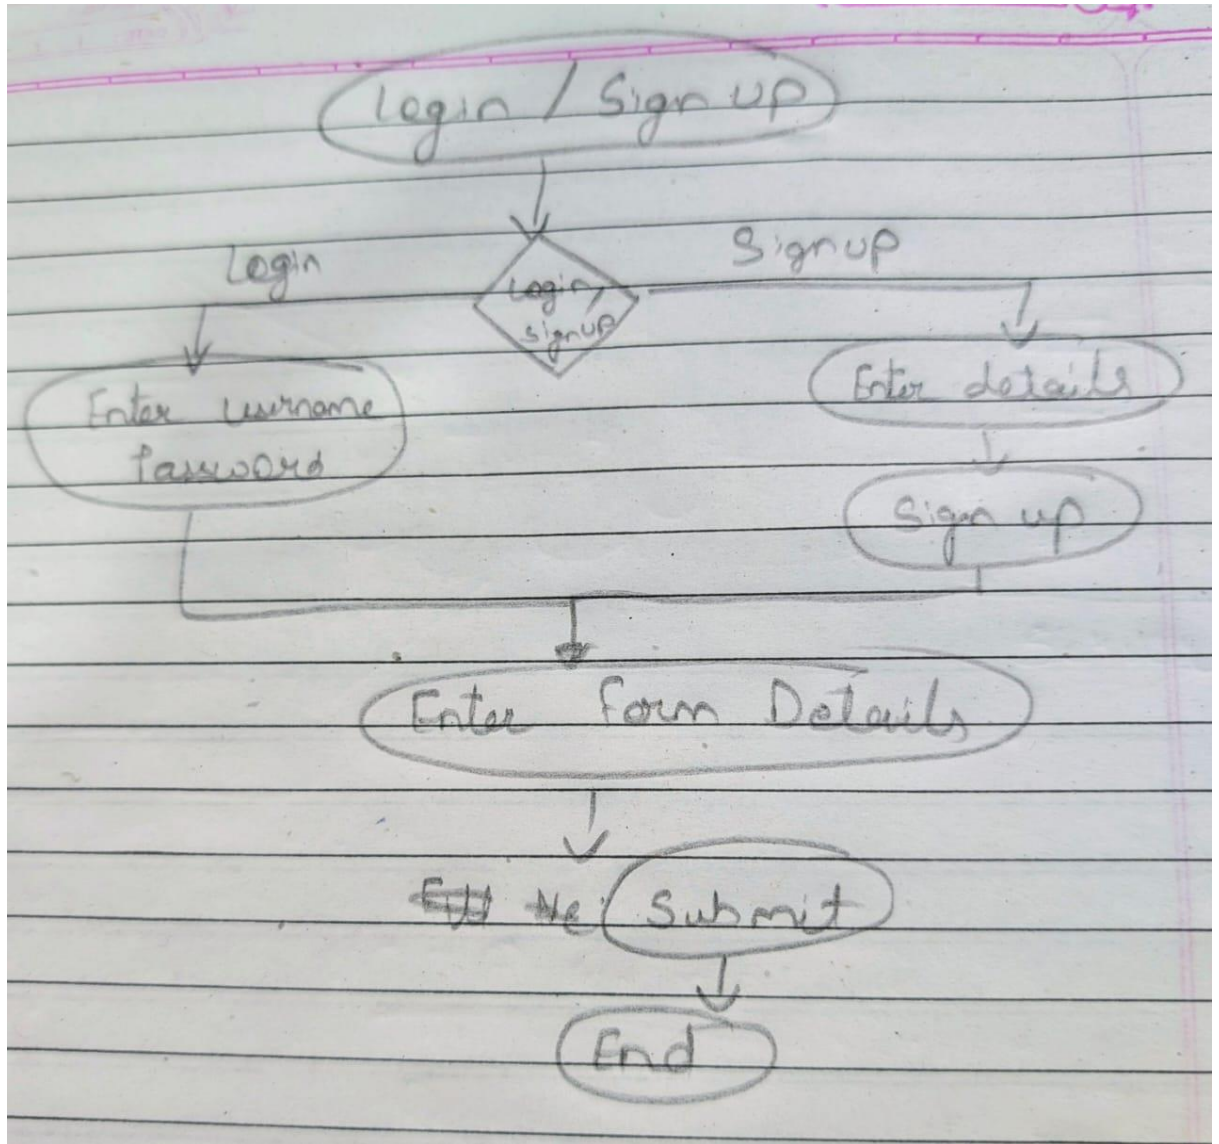 Login / Sign up
Login
Signup
Login,
signup
Enter username
Password
Enter details
Sign up
Enter Form Details
Submit
End